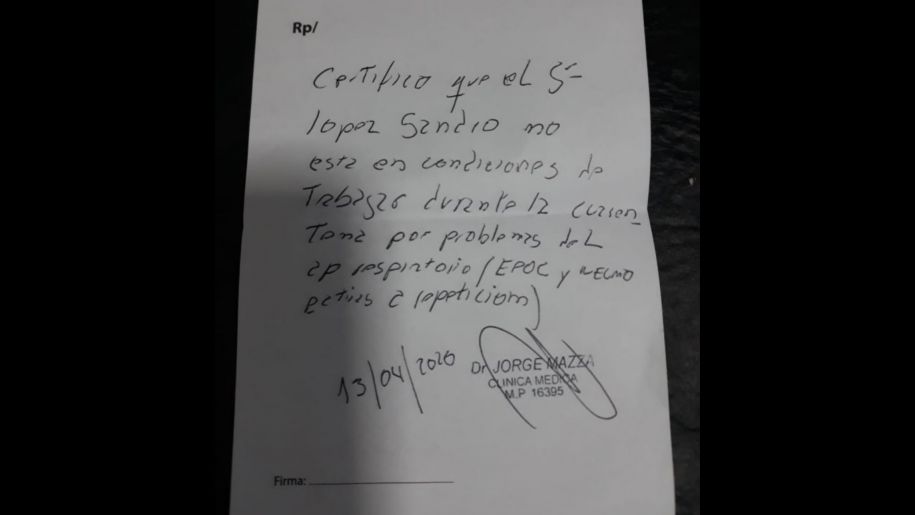 Rp/
Certifico que el Sr
lopez Sandro no
esta en condiciones de
Trabajar durante la cuaren
Tena por problemas del
ap respiratorio (EPOC y NEUMO
patias a repeticion)
13/04/2020
Dr. JORGE MAZZA
CLINICA MEDICA
M.P 16395
Firma: